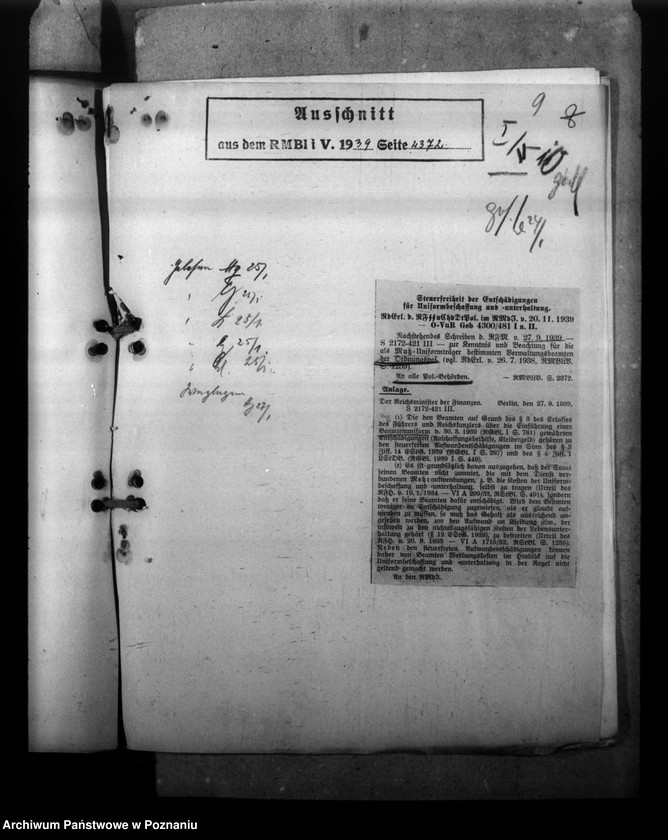 Ausschnitt
aus dem RMBliV. 1939 Seite 2372
9 8
Gelesen Mg 25/1
25/1
25/1
25/1
27/1
Steuerfreiheit der Entschädigungen
für Uniformbeschaffung und -unterhaltung.
RdErl. d. RFSSuChdDtPol. im RMdJ. v. 20. 11. 1939
— O-VuR Geb 4300/481 I u. II.
Nachstehendes Schreiben d. RFM. v. 27. 9. 1939 —
S 2172-421 III — zur Kenntnis und Beachtung für die
als Muß-Uniformträger bestimmten Verwaltungsbeamten
der Ordnungspol. (vgl. RdErl. v. 26. 7. 1938, RMBliV.
S. 1259).
An alle Pol.-Behörden. — RMBliV. S. 2372.
Anlage.
Der Reichsminister der Finanzen. Berlin, den 27. 9. 1939.
S 2172-421 III.
(1) Die den Beamten auf Grund des § 3 des Erlasses
des Führers und Reichskanzlers über die Einführung einer
Beamtenuniform v. 30. 3. 1939 (RGBl. I S. 761) gewährten
Entschädigungen (Anschaffungsbeihilfe, Kleidergeld) gehören zu
den steuerfreien Aufwandentschädigungen im Sinn des § 3
Ziff. 14 EStG. 1939 (RGBl. I S. 297) und des § 4 Ziff. 1
LStDB. (RGBl. 1939 I S. 449).
(2) Es ist grundsätzlich davon auszugehen, daß der Staat
seinen Beamten nicht zumutet, die mit dem Dienst ver-
bundenen Mehraufwendungen, z. B. die Kosten der Uniform-
beschaffung und -unterhaltung, selbst zu tragen (Urteil des
RFH. v. 10. 1. 1934 — VI A 299/33, RStBl. S. 491), sondern
daß er seine Beamten dafür entschädigt. Wird dem Beamten
weniger an Entschädigung zugewiesen, als er glaubt auf-
wenden zu müssen, so muß das Gehalt als ausreichend an-
gesehen werden, um den Aufwand an Kleidung usw., der
insoweit zu den nichtabzugsfähigen Kosten der Lebensunter-
haltung gehört (§ 12 EStG. 1939), zu bestreiten (Urteil des
RFH. v. 20. 9. 1933 — VI A 1715/32, RStBl. S. 1255).
Neben den steuerfreien Aufwandentschädigungen können
daher von Beamten Werbungskosten im Hinblick auf die
Uniformbeschaffung und -unterhaltung in der Regel nicht
geltend gemacht werden.
An den RMdJ.
Archiwum Państwowe w Poznaniu